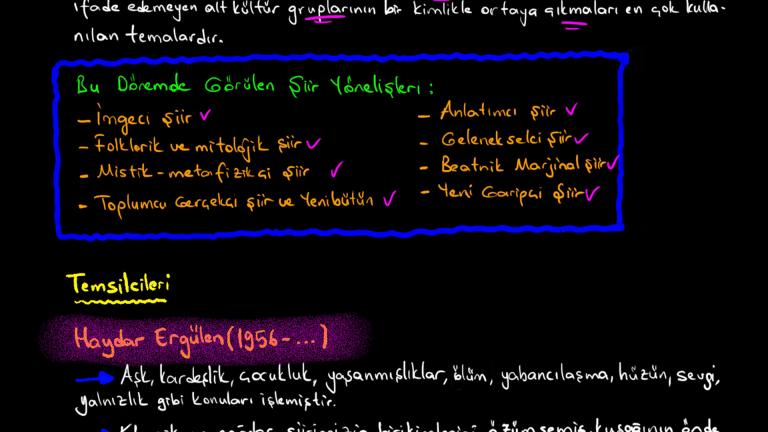 ifade edemeyen alt kültür gruplarının bir kimlikle ortaya çıkmaları en çok kulla-
nılan temalardır.
Bu Dönemde Görülen Şiir Yönelişleri:
- İmgeci Şiir
- Folklorik ve mitolojik şiir
- Mistik-metafizikçi Şiir
- Toplumcu Gerçekçi şiir ve Yenibütün
- Anlatımcı şiir
- Gelenekselci Şiir
- Beatnik Marjinal Şiir
- Yeni Garipçi Şiir
Temsilcileri
Haydar Ergülen (1956-...)
Aşk, kardeşlik, çocukluk, yaşanmışlıklar, ölüm, yabancılaşma, hüzün, sevgi,
yalnızlık gibi konuları işlemiştir.